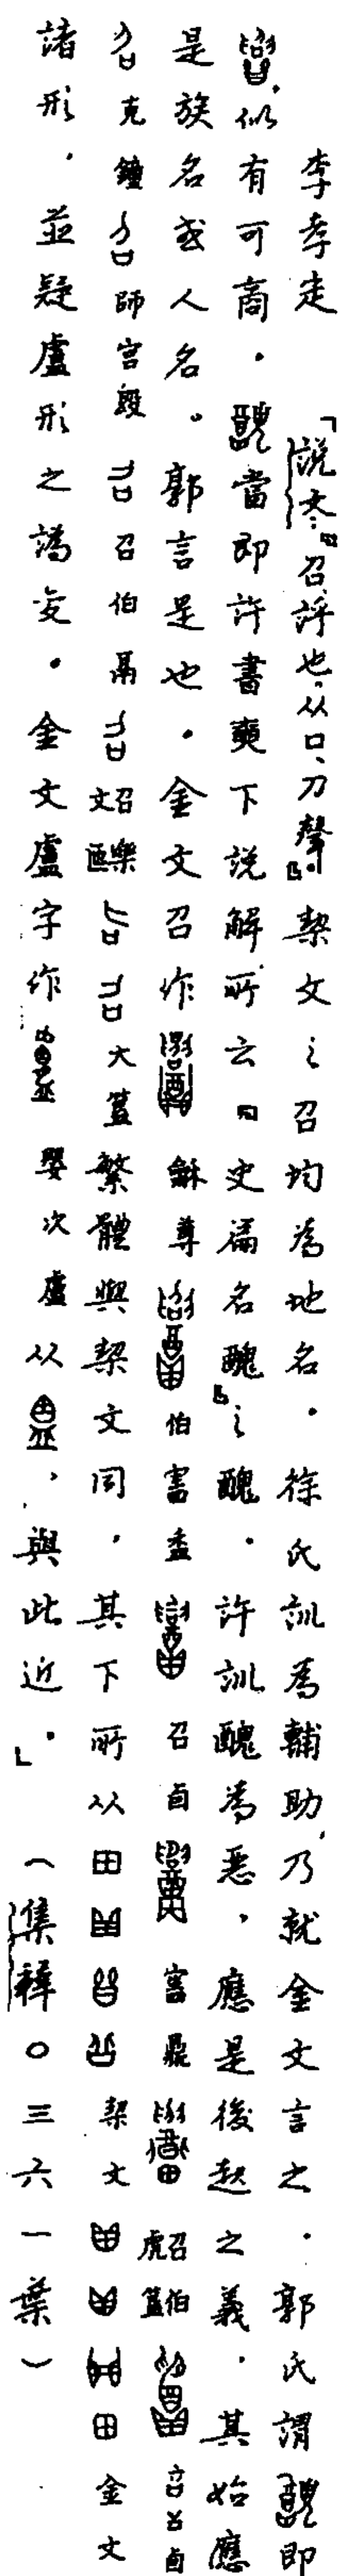 李孝定「說文：『召，評也，从口、刀聲。』契文之召均為地名。徐氏訓為輔助，乃就金文言之。郭氏謂即
似有可商。當即許書奭下說解所云『史篇名醜』之醜。許訓醜為惡，應是後起之義。其始應
是族名或人名。郭言是也。金文召作 龢尊 伯害盉 召卣 害鼎 召伯虎簋 召卣
克鐘 師害𣪘 召伯鬲 召樂父匜 大簋 繁體與契文同，其下所从 契文 金文
諸形，並疑盧形之譌變。金文盧字作 嬰次盧 从，與此近。」（集釋〇三六一葉）